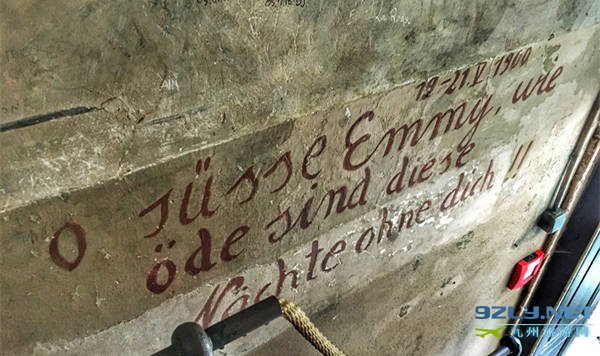 19-21 V 1900
O süsse Emmy, wie
öde sind diese
Nächte ohne dich!!
9ZLY.NET
九州旅游网